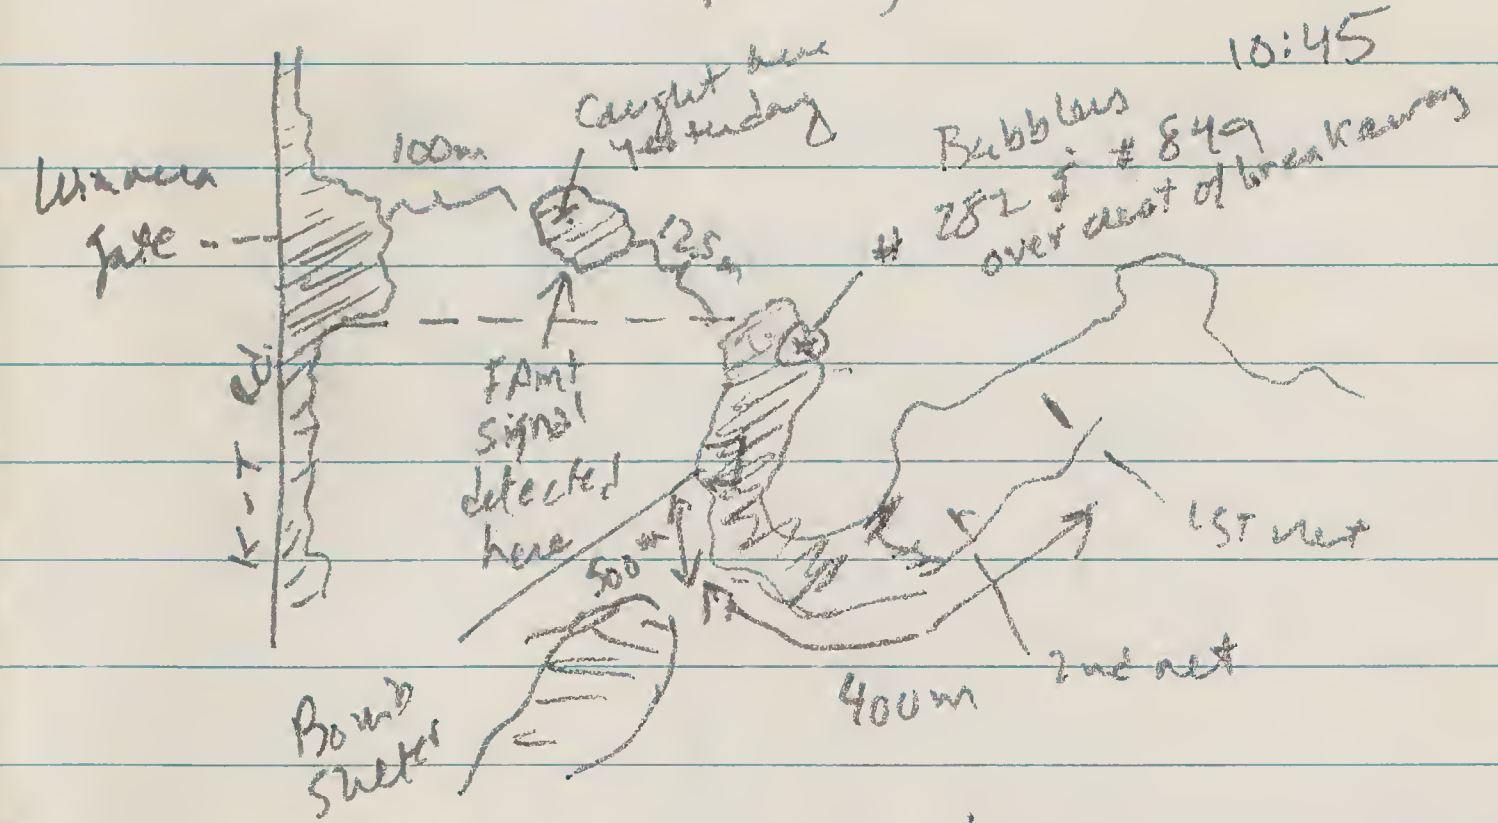 10:45
Caught here
yesterday
Bubblers
282 & # 849
over crest of breakaway
100m
gate
125m
#
Rd.
FAint
signal
detected
here
1st net
500m
2nd net
400m
Bomb
Shelter